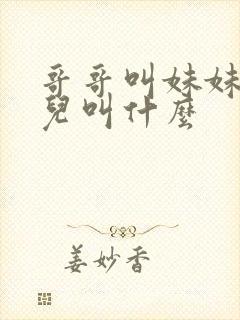 哥哥叫妹妹
兒叫什麼
姜妙香